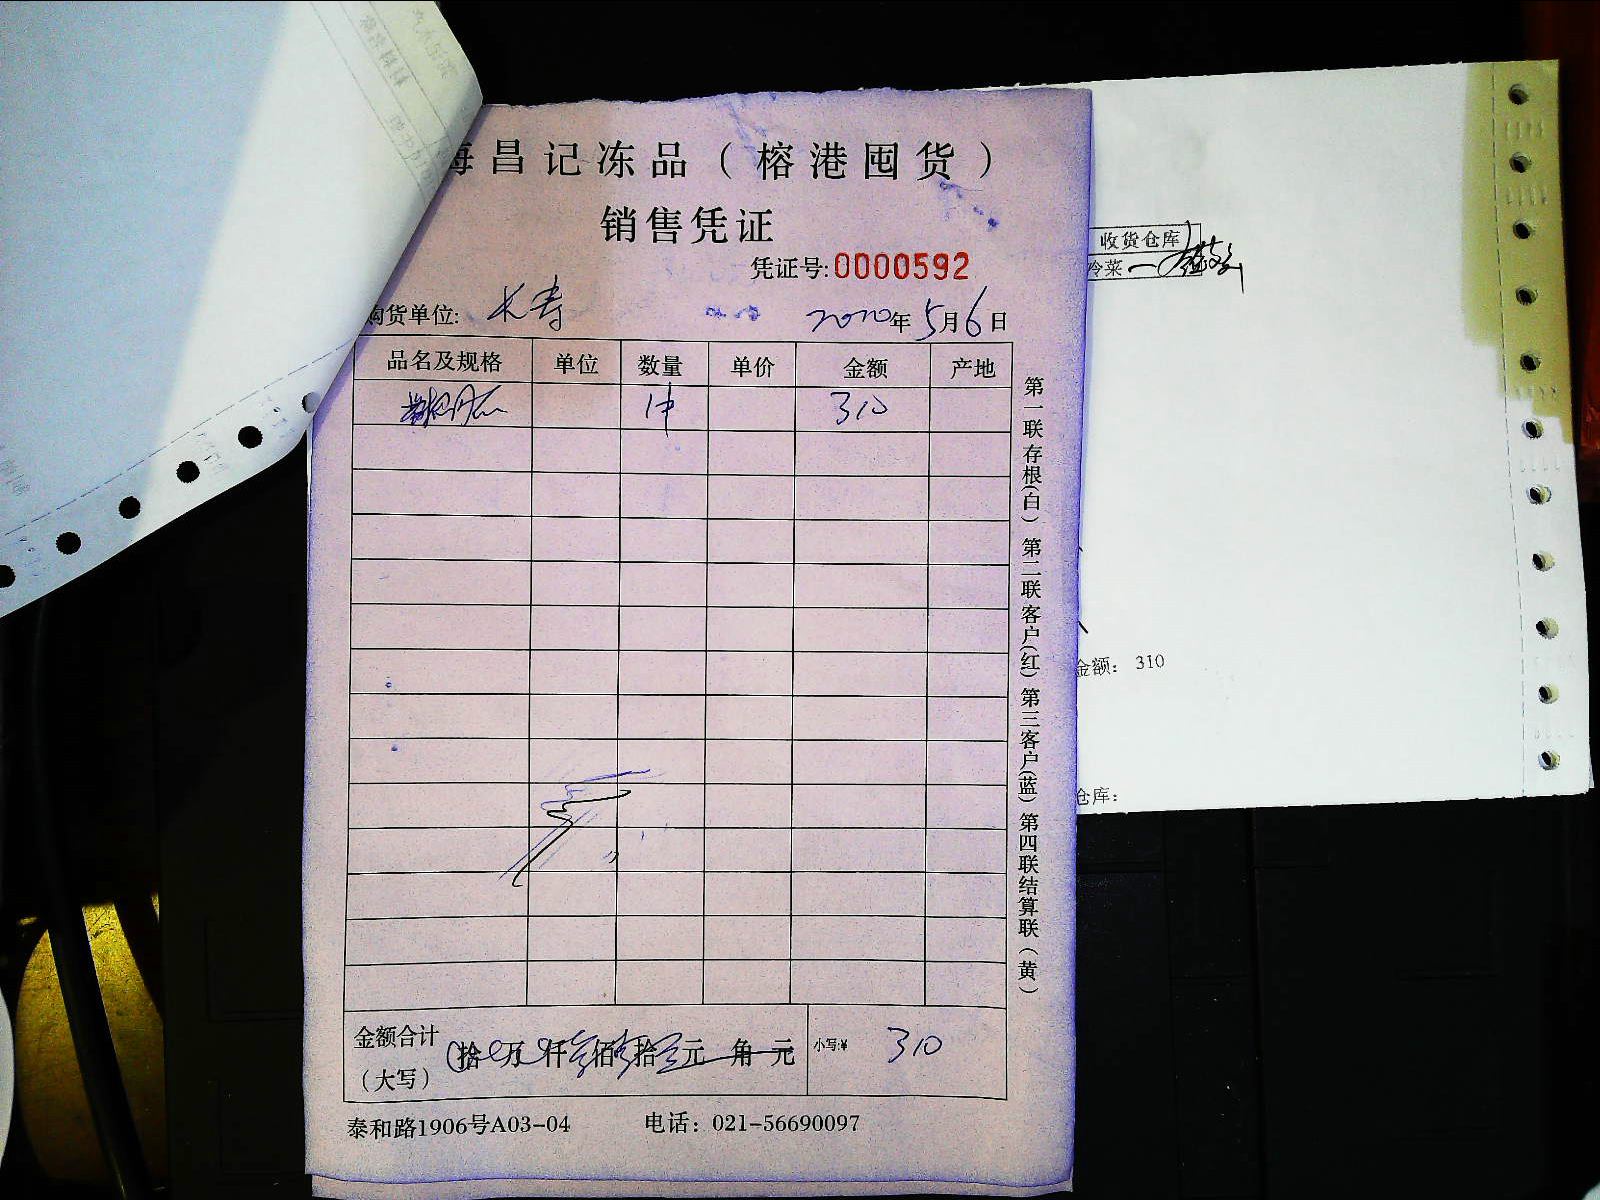 海昌记冻品(榕港囤货)
销售凭证
凭证号:0000592
购货单位: 长寿 2020年5月6日
品名及规格 单位 数量 单价 金额 产地
1件 310
金额合计(大写) 拾 万 仟 佰 拾 元 角 元 小写:¥ 310
泰和路1906号A03-04 电话：021-56690097
第一联存根(白) 第二联客户(红) 第三客户(蓝) 第四联结算联(黄)
收货仓库
冷菜一
金额： 310
仓库：